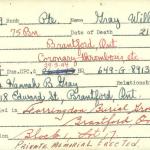 Rank Pte. Gray Will
75 Bn. Date of Death 21
Brantford, Ont
Coronary Thrombosis etc
29-3-49 649-G-8913
Hannah B. Gray
18 Edward St, Brantford, Ont.
Farringdon Burial Gro
Brantford On
Block 1, Lot 17
PRIVATE MEMORIAL ERECTED